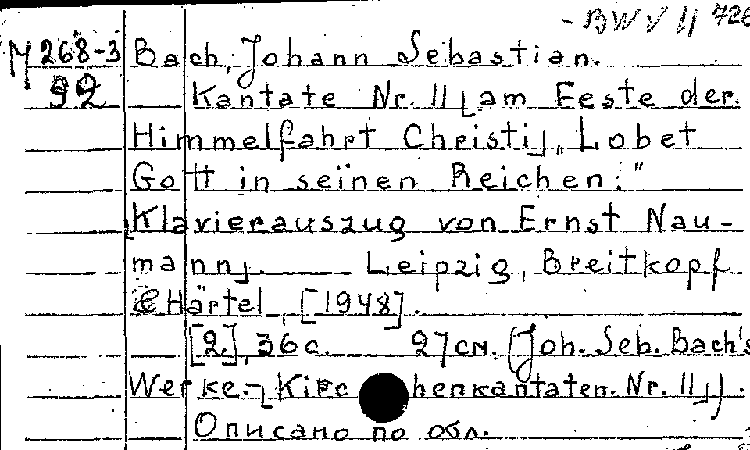 - BWV 11 726
М 268-3 Bach, Johann Sebastian.
92 Kantate Nr. 11 [am Feste der
Himmelfahrt Christi], „Lobet
Gott in seinen Reichen:"
Klavierauszug von Ernst Nau-
mann]. Leipzig, Breitkopf
& Härtel, [1948].
[2], 36 с. 27 см. (Joh. Seb. Bach's
Werke. [Kirchenkantaten. Nr. 11]).
Описано по обл.